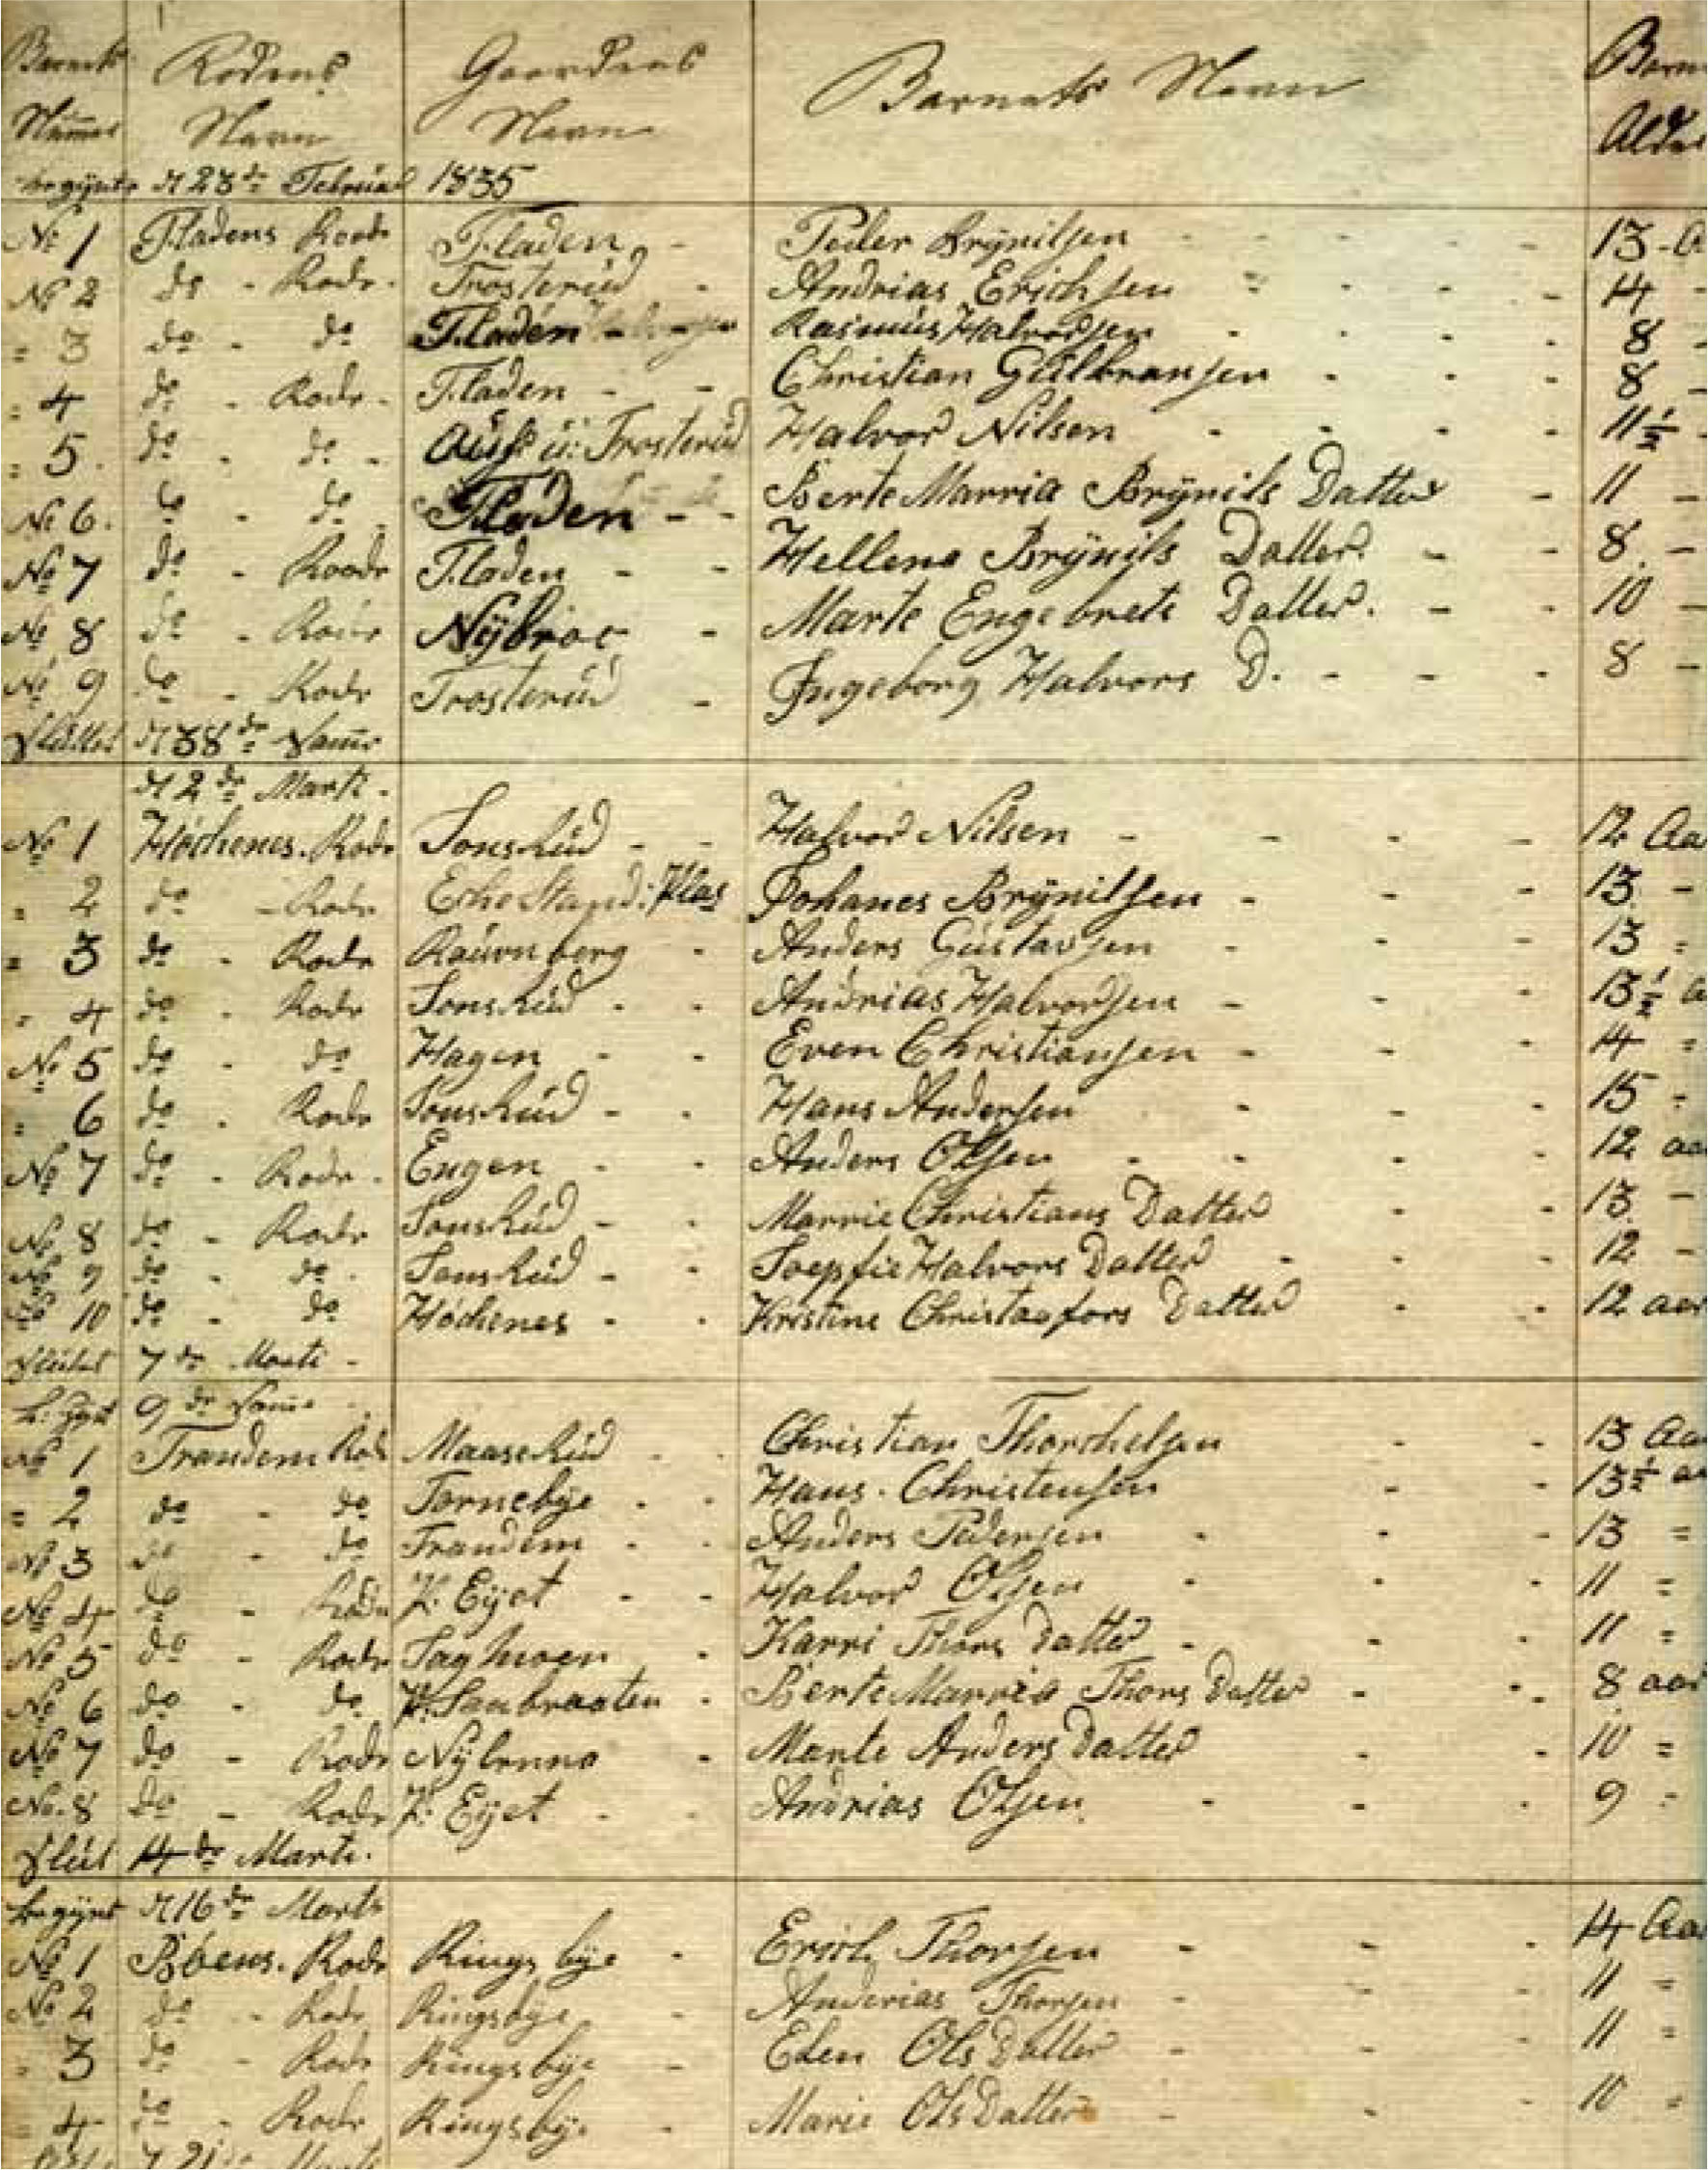 Barnets Rodens Gaardens Barnets Navn Barn
Numer Navn Navn Alder
begynte d 23de Februar 1835
No 1 Fladens Rode Fladen - Peder Brÿnilsen 13 - a
No 2 do - Rode - Trosterud - Andrias Erichsen 14 -
" 3 do - do Fladen Rasmus Halvorsen 8 -
" 4 do - Rode - Fladen - - Christian Gulbransen 8 -
" 5 do - do - u: Trosterud Halvor Nilsen 11½ -
No 6 do - do - Fladen - - Berte Marria Brÿnils Datter 11 -
No 7 do - Roode Fladen - - Hellena Brÿnils Datter 8 -
No 8 do - Rode Nÿbroe - Marte Engebrets Datter. 10 -
No 9 do - Rode Trosterud - Ingeborg Halvors D. 8 -
Sluttet d 38de Same
d 2de Marti.
No 1 Höchenes. Rode Sonskud - - Halvor Nilsen 12 Aa
" 2 do - Rode Plas Johanes Brÿnilsen 13 -
" 3 do - Rode Raúvnberg - Anders Gústavsen 13 "
" 4 do - Rode Sonskud - - Andrias Halvorsen 13½ a
No 5 do - do Hagen - - Even Christiansen 14 "
" 6 do - Rode Sonskud - - Hans Andersen 15 "
No 7 do - Rode - Engen - - Anders Olsen 12 aa
No 8 do - Rode Sonskud - - Marrie Christians Datter 13 -
No 9 do - do - Sonskud - - Soepfie Halvors Datter 12 -
No 10 do - do Höchenes - - Kristine Christoffors Datter 12 aar
Slutet 7de Marti -
9de Same
No 1 Trandem Rode Maaserud - - Christian Thorchelsen 13 Aa
" 2 do - do Tornebÿe - - Hans. Christensen 13½ aa
No 3 do - do Trandem - - Anders Pedersen 13 "
No 4 do - Rode P. Eÿet - - Halvor Olsen 11 "
No 5 do - Rode Sagmoen - Karri Thors Datter 11 "
No 6 do - do P. Saubraaten - Berte Marria Thors Datter 8 aar
No 7 do - Rode Nÿbrenna - Marte Anders Datter 10 "
No. 8 do - Rode P. Eÿet - - Andrias Olsen 9 "
Slut 14de Marti.
begÿnt d 16de Marti
No 1 Böens. Rode Ringsbÿe - Erich Thorsen 14 Aa
No 2 do - Rode Ringsbÿe - Anderias Thorsen 11 "
" 3 do - Rode Ringsbÿe - Elen Ols Datter 11 "
" 4 do - Rode Ringsbÿe - Marie Ols Datter 10 "
d 21de Marti